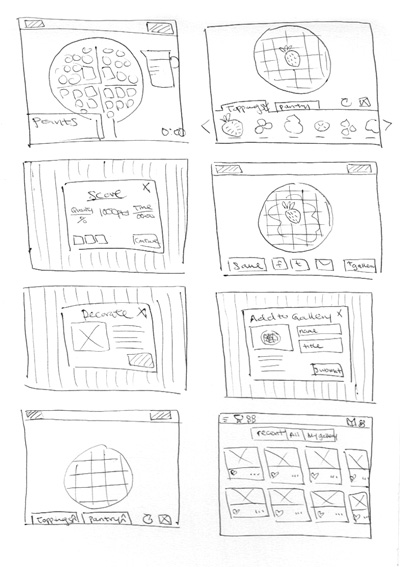 Points
0:00
Toppings
Pantry
Score
X
Quality
%
1000pts
Time
00:00
Continue
Save
f
t
+gallery
Decorate
X
Add to Gallery
X
name
title
Submit
Toppings
Pantry
recent
All
My gallery